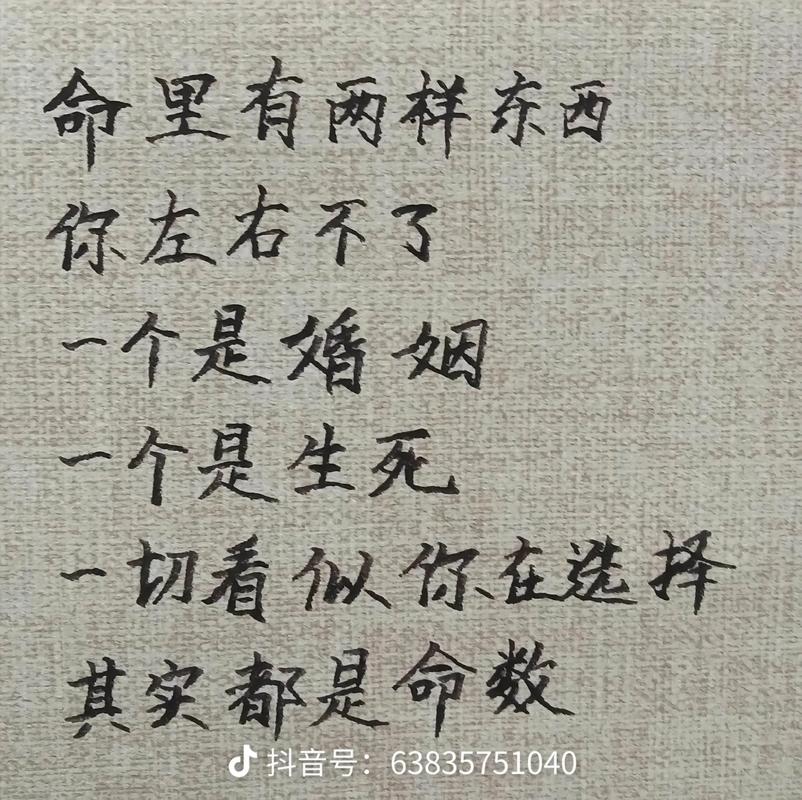 命里有两样东西
你左右不了
一个是婚姻
一个是生死
一切看似你在选择
其实都是命数
抖音号：63835751040